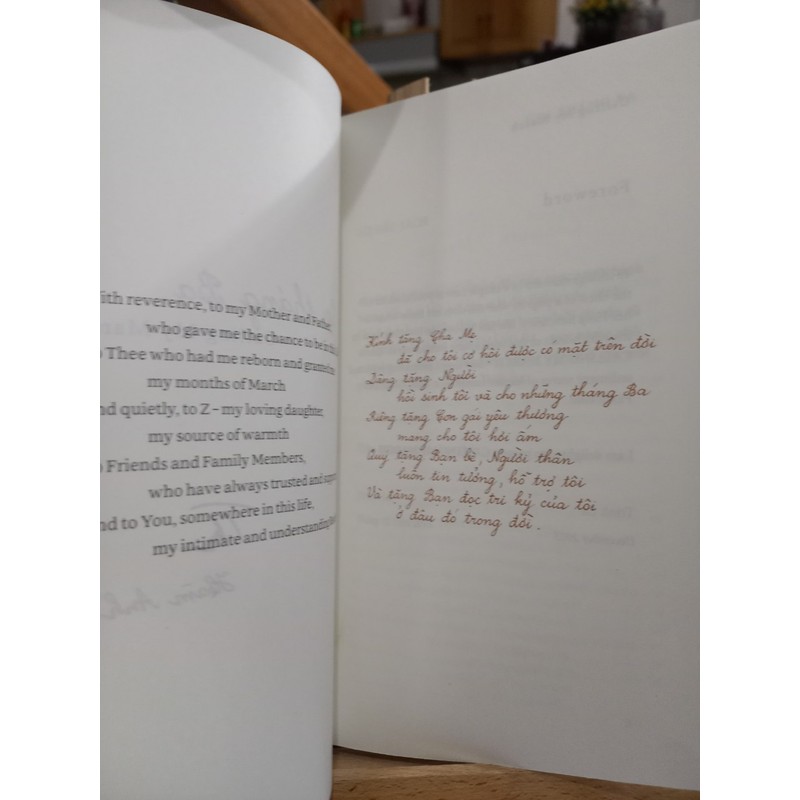 ith reverence, to my Mother and Father,
who gave me the chance to be in
Thee who had me reborn and granted
my months of March
nd quietly, to Z – my loving daughter,
my source of warmth
Friends and Family Members,
who have always trusted and
nd to You, somewhere in this life,
my intimate and understanding
Foreword
Kính tặng Cha Mẹ
đã cho tôi cơ hội được có mặt trên đời
Dâng tặng Người
hồi sinh tôi và cho những tháng Ba
Riêng tặng Con gái yêu thương
mang cho tôi hơi ấm
Quý tặng Bạn bè, Người thân
luôn tin tưởng, hỗ trợ tôi
Và tặng Bạn đọc tri kỷ của tôi
ở đâu đó trong đời.